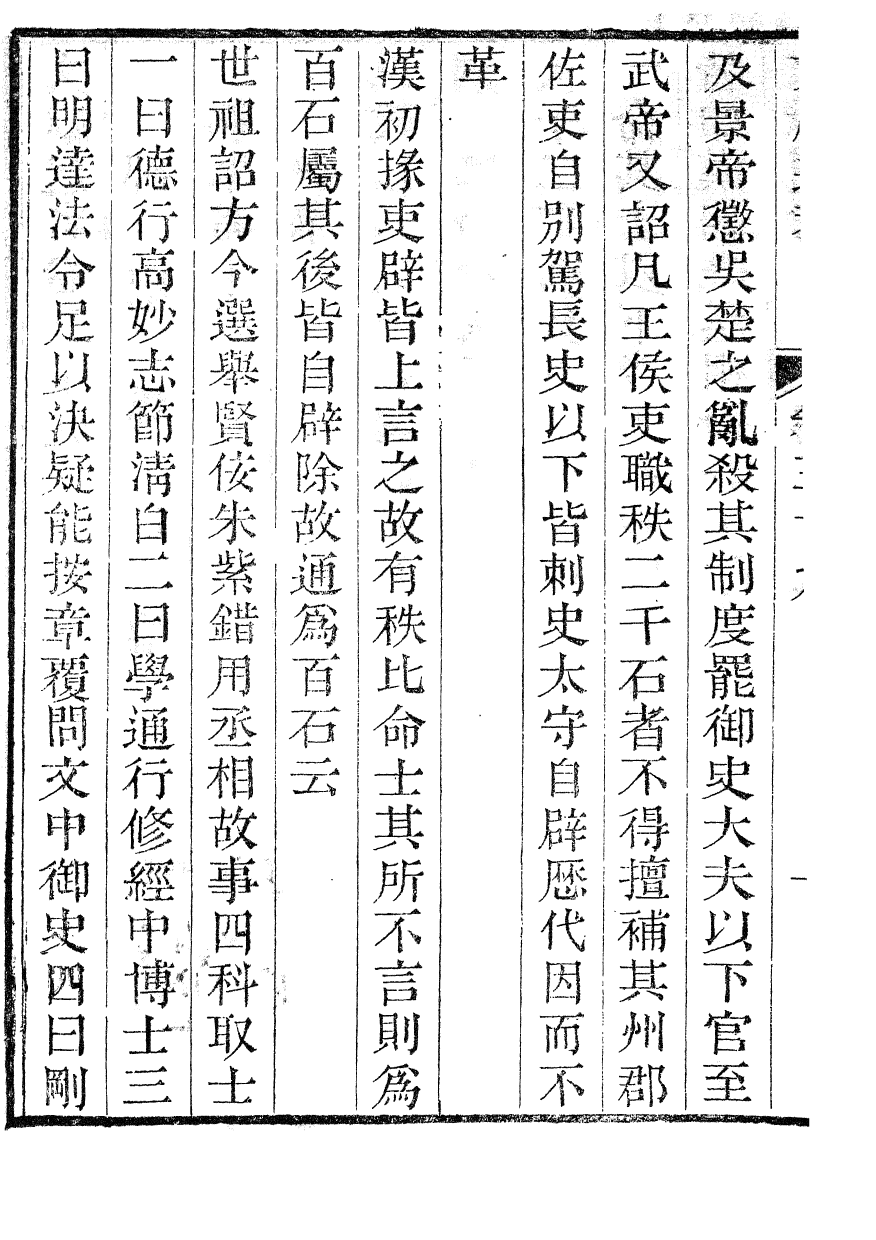 及景帝懲吳楚之亂殺其制度罷御史大夫以下官至
武帝又詔凡王侯吏職秩二千石者不得擅補其州郡
佐吏自別駕長史以下皆刺史太守自辟歷代因而不
革
漢初掾吏辟皆上言之故有秩比命士其所不言則爲
百石屬其後皆自辟除故通爲百石云
世祖詔方今選舉賢佞朱紫錯用丞相故事四科取士
一曰德行高妙志節淸白二曰學通行修經中博士三
曰明達法令足以決疑能按章覆問文中御史四曰剛